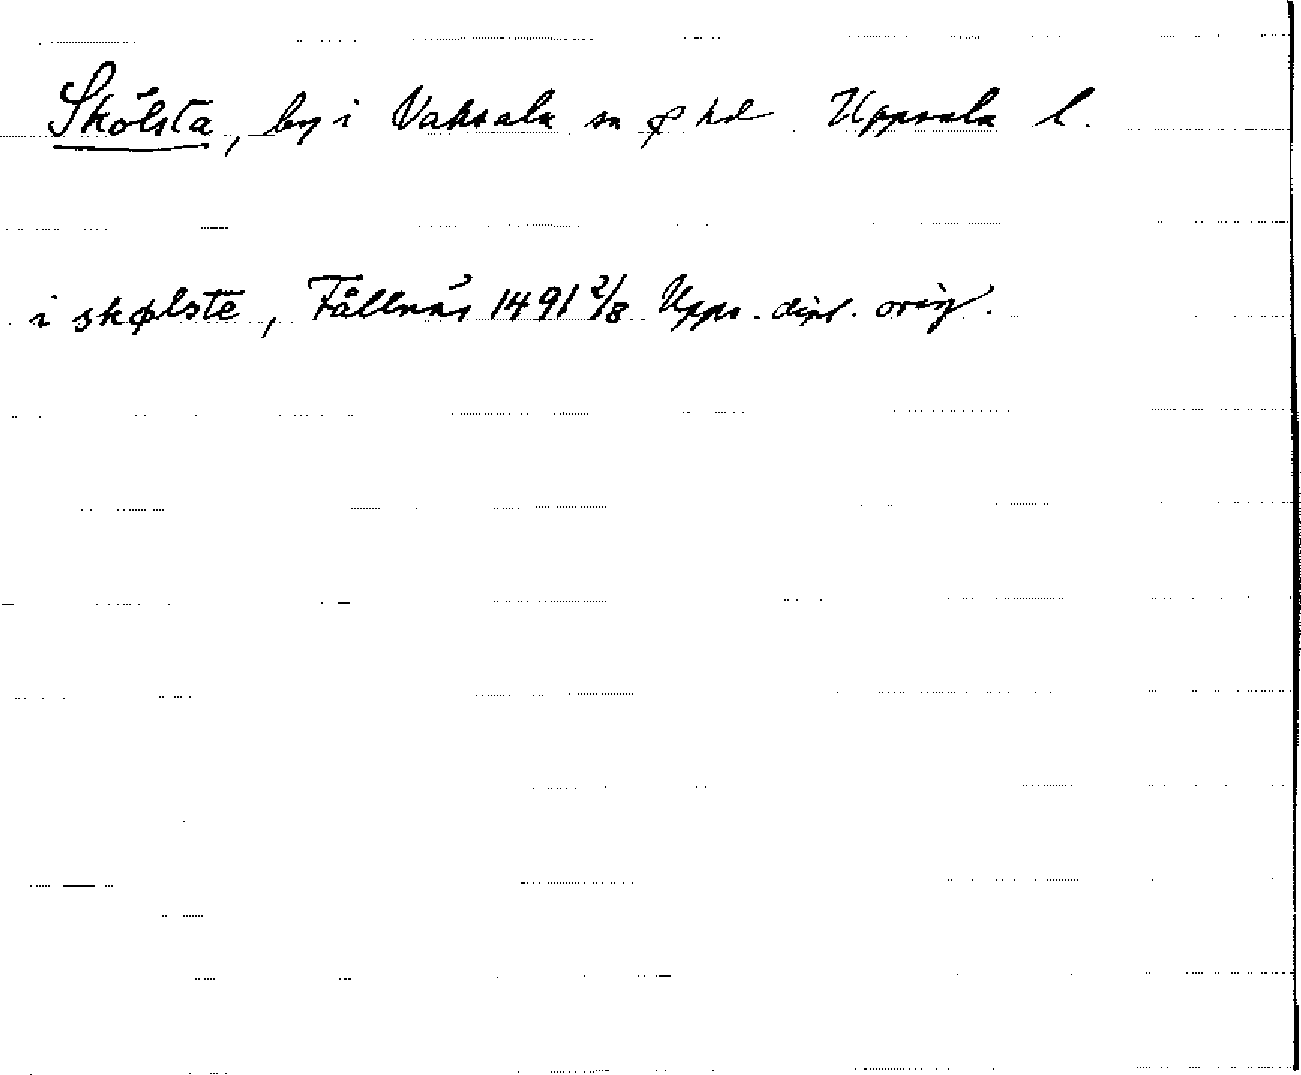 Skölsta, by i Vaksala sn o hd Uppsala l.
i skølste, Fållnäs 1491 2/8 Upps. dipl. orig.